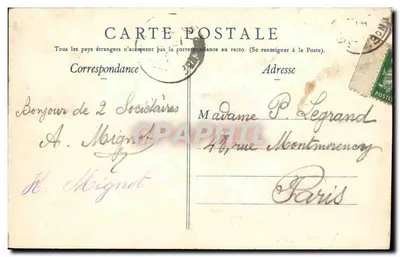 CARTE POSTALE
Tous les pays étrangers n'acceptent pas la correspondance au recto. (Se renseigner à la Poste).
Correspondance
Adresse
Bonjour de 2 Sociétaires
A. Mignot
H. Mignot
Madame P. Legrand
48, rue Montmorency
Paris